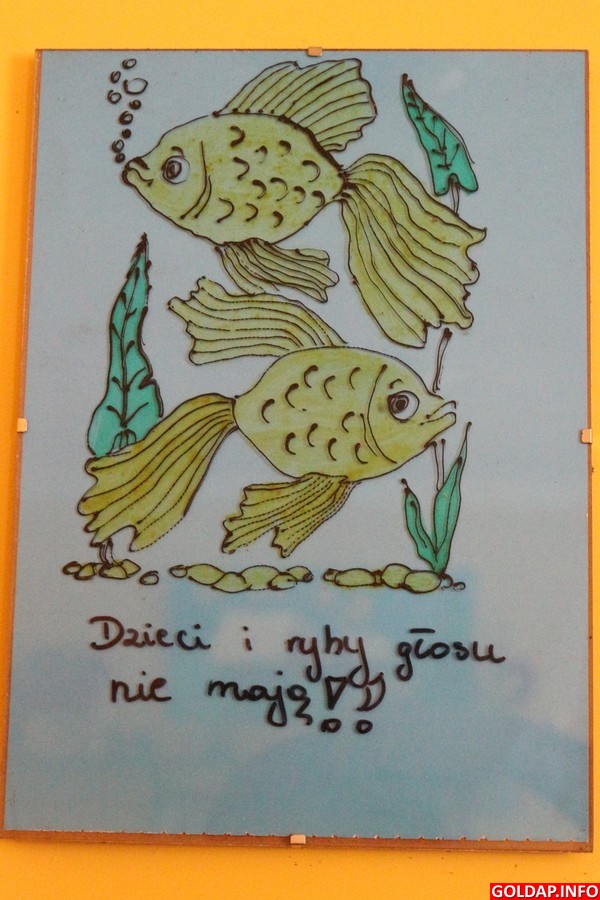 Dzieci i ryby głosu
nie mają!!
GOLDAP.INFO